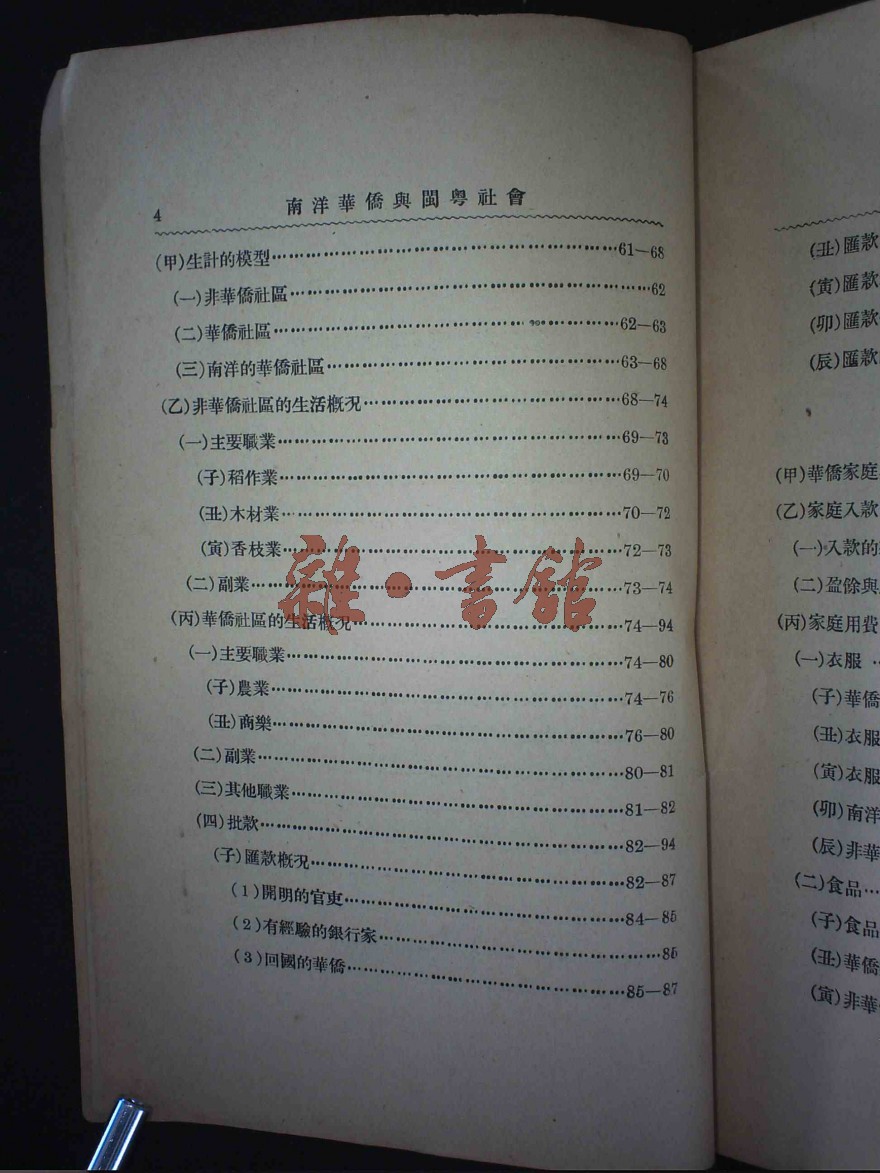 4
南洋華僑與閩粤社會
(甲)生計的模型……61—68
(一)非華僑社區……62
(二)華僑社區……62—63
(三)南洋的華僑社區……63—68
(乙)非華僑社區的生活概况……68—74
(一)主要職業……69—73
(子)稻作業……69—70
(丑)木材業……70—72
(寅)香枝業……72—73
(二)副業……73—74
(丙)華僑社區的生活概况……74—94
(一)主要職業……74—80
(子)農業……74—76
(丑)商樂……76—80
(二)副業……80—81
(三)其他職業……81—82
(四)批款……82—94
(子)匯款概况……82—87
(1)開明的官吏……84—85
(2)有經驗的銀行家……85
(3)回國的華僑……85—87
雜·書館
(丑)匯款
(寅)匯款
(卯)匯款
(辰)匯款
(甲)華僑家庭
(乙)家庭入款
(一)入款的
(二)盈餘與
(丙)家庭用費
(一)衣服…
(子)華僑
(丑)衣服
(寅)衣服
(卯)南洋
(辰)非華
(二)食品…
(子)食品
(丑)華僑
(寅)非華